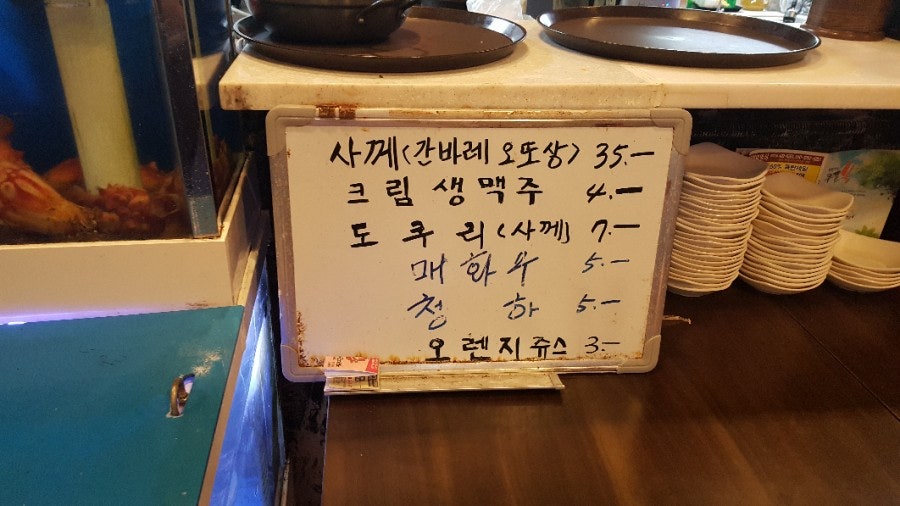 사께(간바레 오또상) 35.-
크림 생맥주 4.-
도쿠리(사께) 7.-
매화수 5.-
청하 5.-
오렌지쥬스 3.-